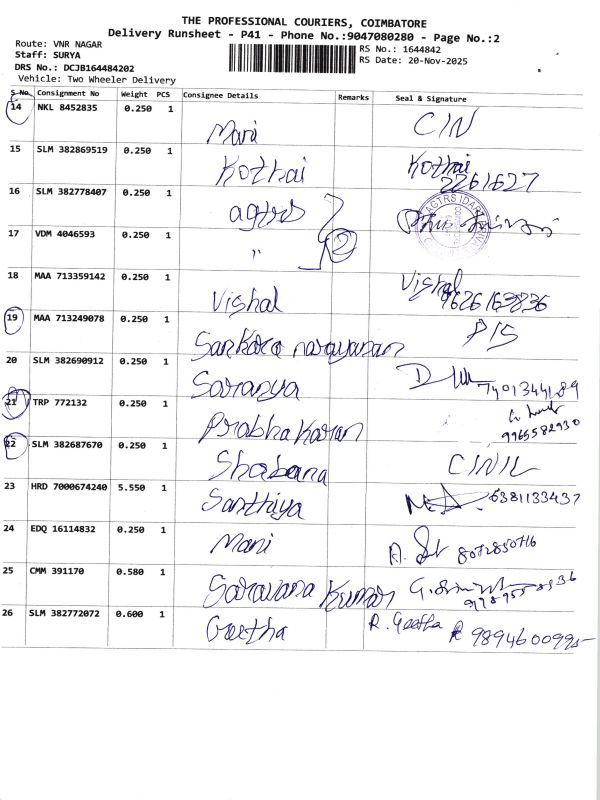 THE PROFESSIONAL COURIERS, COIMBATORE
Delivery Runsheet - P41 - Phone No.:9047080280 - Page No.:2
Route: VNR NAGAR
Staff: SURYA
DRS No.: DCJB164484202
Vehicle: Two Wheeler Delivery
RS No.: 1644842
RS Date: 20-Nov-2025
S No Consignment No Weight PCS Consignee Details Remarks Seal & Signature
14 NKL 8452835 0.250 1 Mari C/N
15 SLM 382869519 0.250 1 Kothai Kothai 2261627
16 SLM 382778407 0.250 1 agtrs
17 VDM 4046593 0.250 1 " 2
18 MAA 713359142 0.250 1 Vishal Vishal 9626163836
19 MAA 713249078 0.250 1 Sankara narayanan P/S
20 SLM 382690912 0.250 1 Saranya 7401344189
21 TRP 772132 0.250 1 Prabhakaran 9965582930
22 SLM 382687670 0.250 1 Shabana
23 HRD 7000674240 5.550 1 Santhiya 6381133437
24 EDQ 16114832 0.250 1 Mani
25 CMM 391170 0.580 1 Saravana Kumar
26 SLM 382772072 0.600 1 Geetha R. Geetha